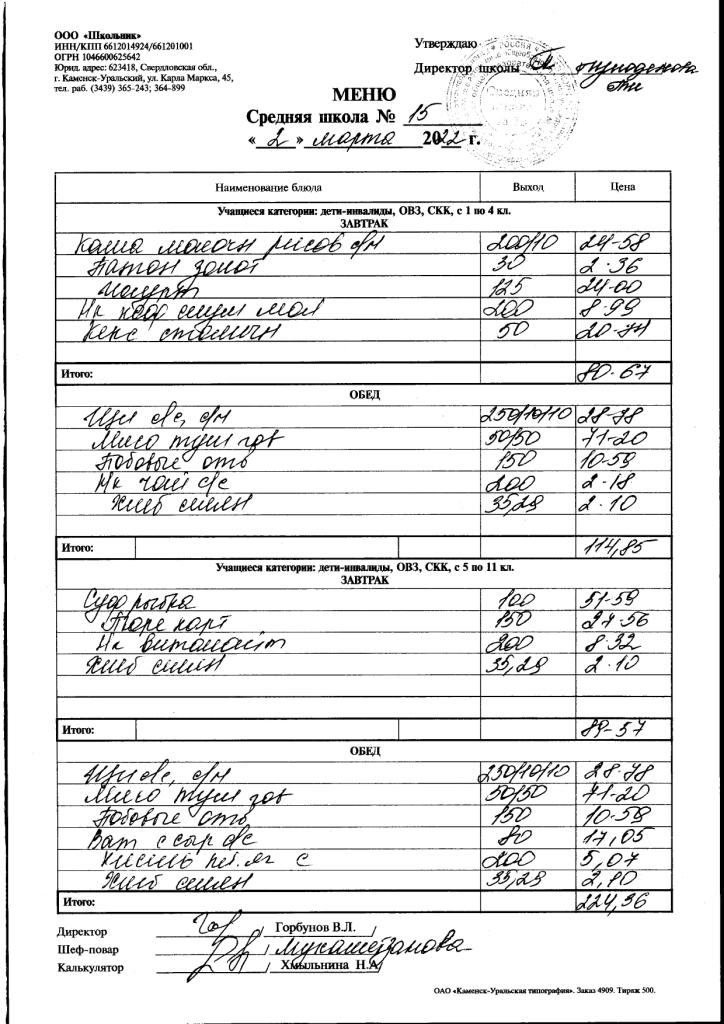 ООО «Школьник»
ИНН/КПП 6612014924/661201001
ОГРН 1046600625642
Юрид. адрес: 623418, Свердловская обл.,
г. Каменск-Уральский, ул. Карла Маркса, 45,
тел. раб. (3439) 365-243; 364-899
Утверждаю
Директор школы
МЕНЮ
Средняя школа № 15
« 2 » марта 2022 г.
Наименование блюда Выход Цена
Учащиеся категории: дети-инвалиды, ОВЗ, СКК, с 1 по 4 кл.
ЗАВТРАК
Каша молочн рисов с/м 200/10 24-58
Батон золот 30 2-36
Йогурт 125 24-00
Нк кофр сгущ мол 200 8-99
Кекс столичн 50 20-74
Итого: 80-67
ОБЕД
Щи с/с, с/м 250/10/10 28-78
Мясо туш гов 50/50 71-20
Бобовые отв 150 10-59
Нк чай с/с 200 2-18
Хлеб смен 35,29 2-10
Итого: 114,85
Учащиеся категории: дети-инвалиды, ОВЗ, СКК, с 5 по 11 кл.
ЗАВТРАК
рыбка 100 51-59
Пюре карт 150 27-56
Нк витамаист 200 8-32
Хлеб смен 35,29 2-10
Итого: 89-57
ОБЕД
Щи с/с, с/м 250/10/10 28-78
Мясо туш гов 50/50 71-20
Бобовые отв 150 10-59
Ват с сыр с/с 80 17,05
Кисель 200 5,07
Хлеб смен 35,29 2,10
Итого: 224,36
Директор / Горбунов В.Л. /
Шеф-повар / Мукаметзанова
Калькулятор / Хмыльнина Н.А/
ОАО «Каменск-Уральская типография». Заказ 4909. Тираж 500.